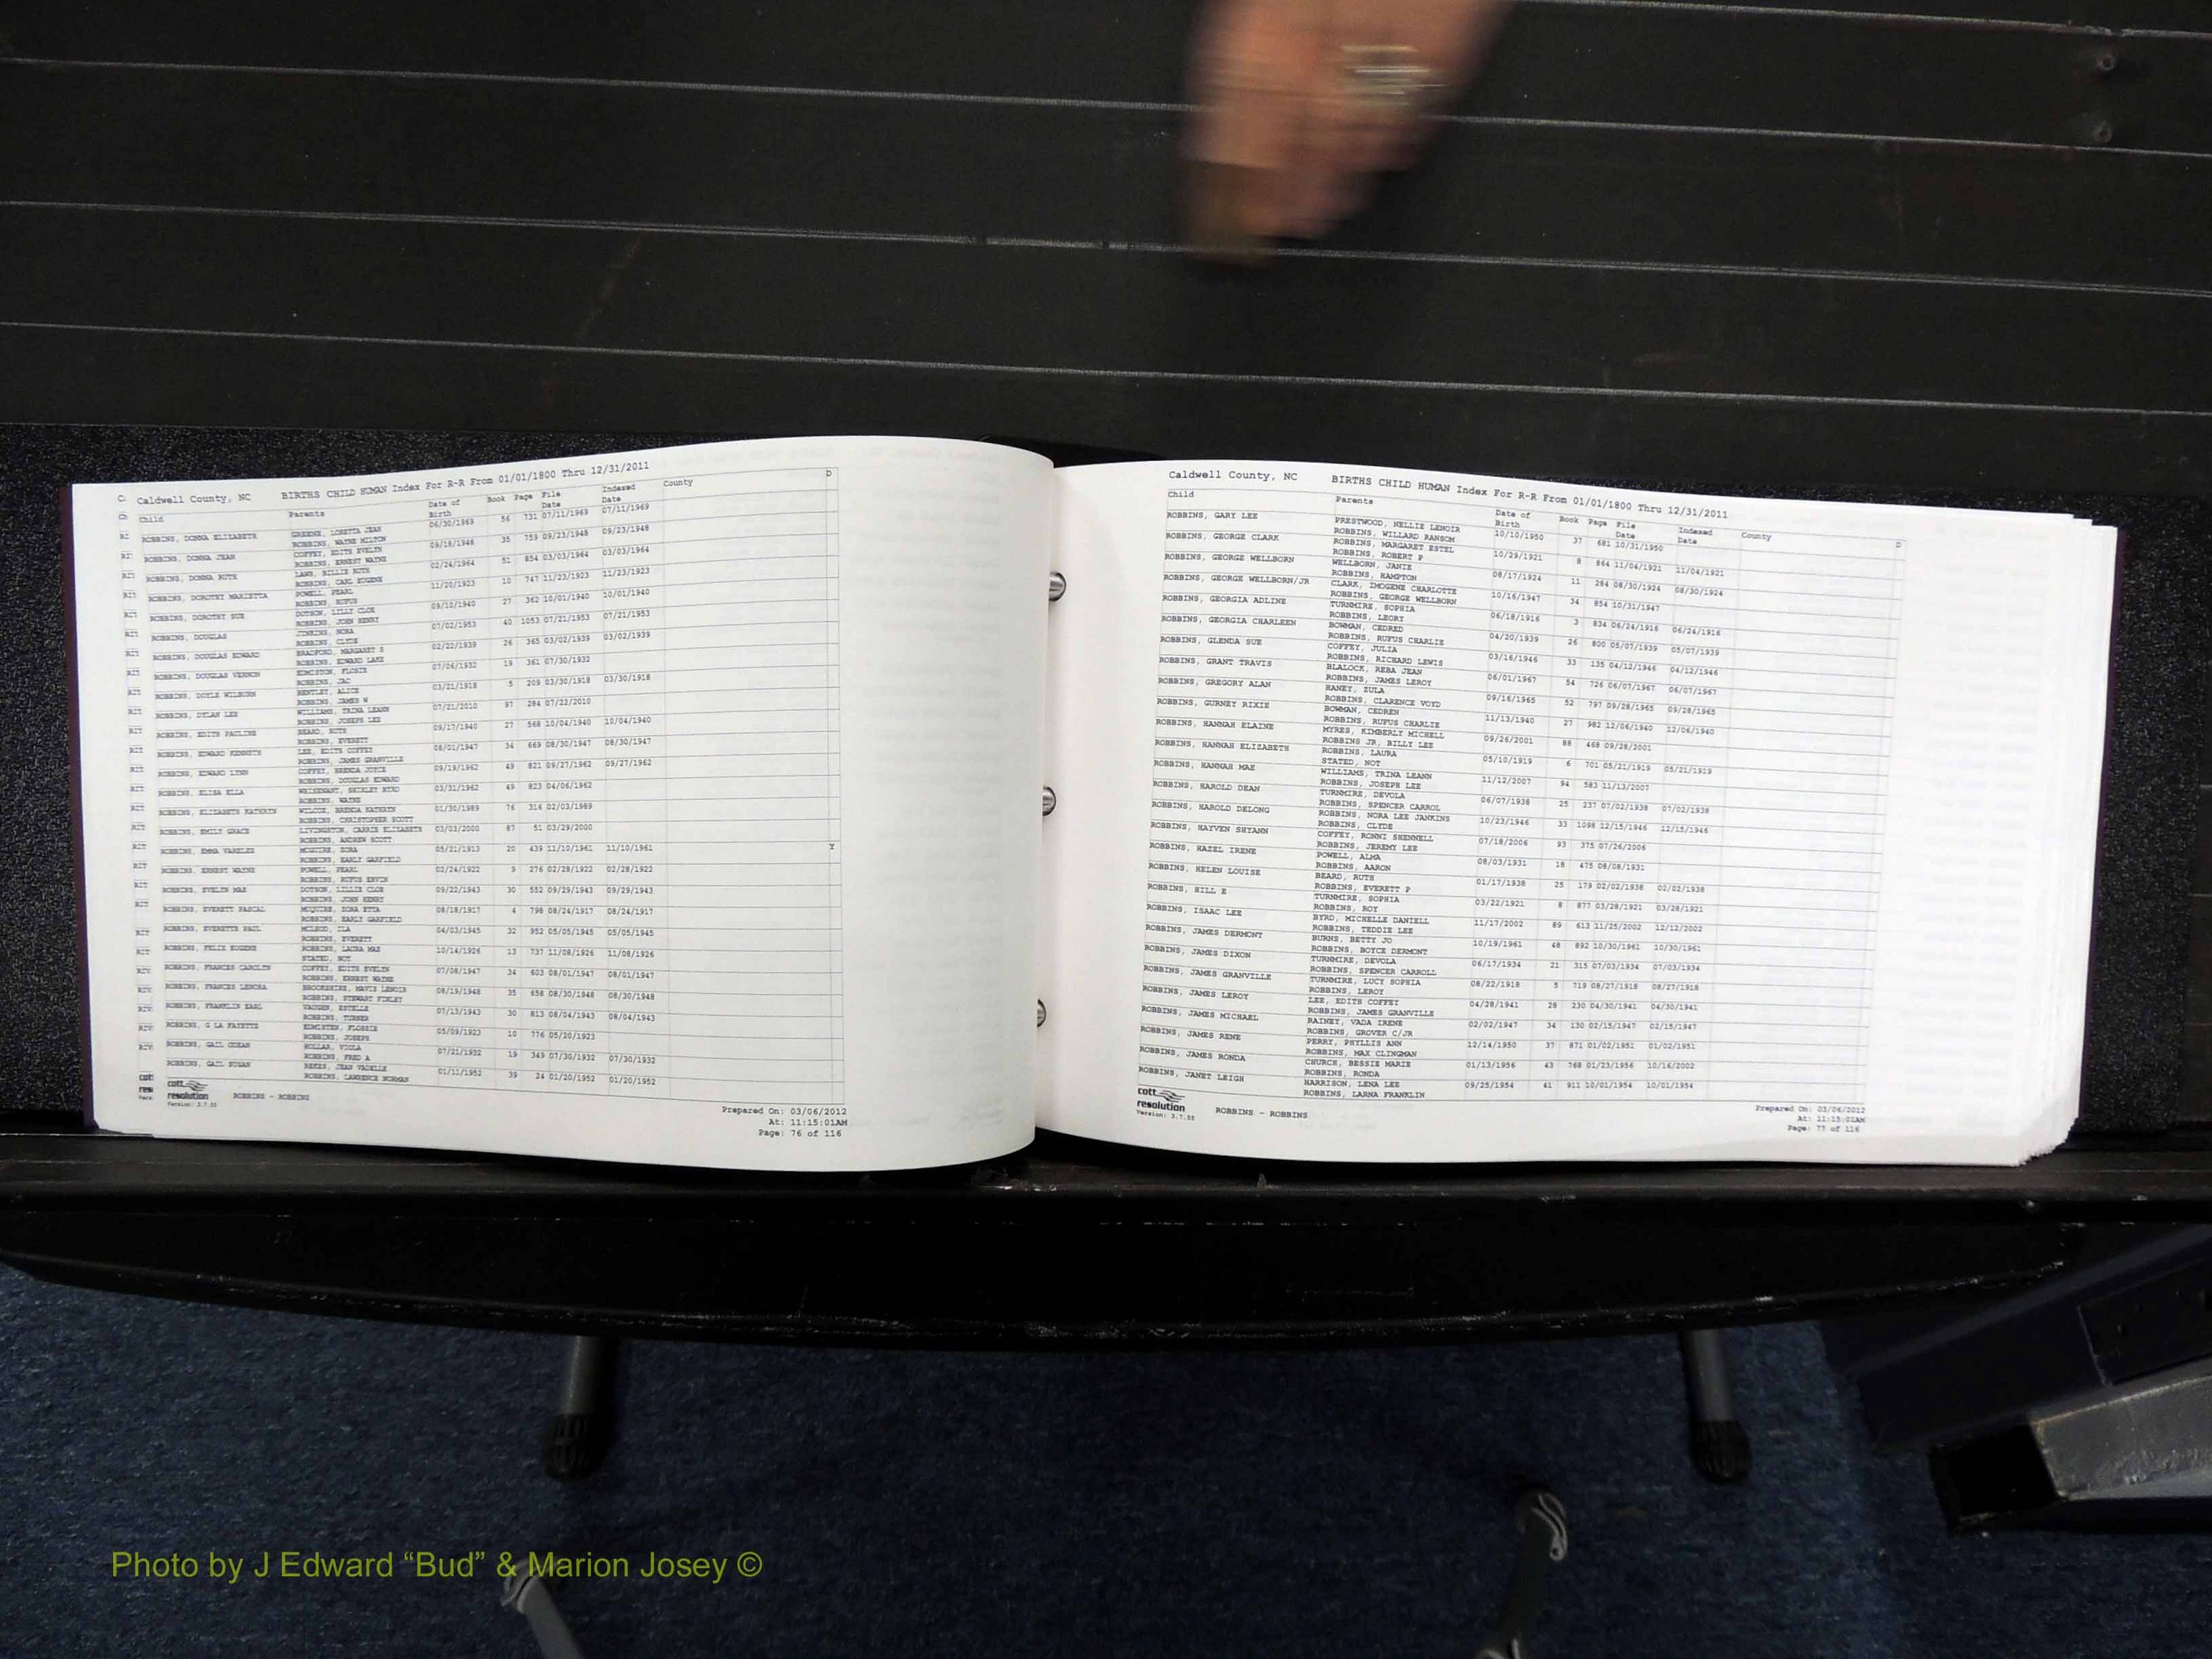 Caldwell County, NC BIRTHS CHILD HUMAN Index For R-R From 01/01/1800 Thru 12/31/2011
Child Parents Date of Birth Book Page File Date Indexed Date County D
ROBBINS, DONNA ELIZABETH GREENE, LORETTA JEAN 06/30/1969 56 731 07/11/1969 07/11/1969
ROBBINS, WAYNE MILTON
ROBBINS, DONNA JEAN COFFEY, EDITH EVELYN 09/18/1948 35 759 09/23/1948 09/23/1948
ROBBINS, ERNEST WAYNE
ROBBINS, DONNA RUTH LAWS, BILLIE RUTH 02/24/1964 51 854 03/03/1964 03/03/1964
ROBBINS, CARL EUGENE
ROBBINS, DOROTHY MARIETTA POWELL, PEARL 11/20/1923 10 747 11/23/1923 11/23/1923
ROBBINS, RUFUS
ROBBINS, DOROTHY SUE DOTSON, LILLY CLOE 09/10/1940 27 362 10/01/1940 10/01/1940
ROBBINS, JOHN HENRY
ROBBINS, DOUGLAS JINKINS, NORA 07/02/1953 40 1053 07/21/1953 07/21/1953
ROBBINS, CLYDE
ROBBINS, DOUGLAS EDWARD BRADFORD, MARGARET E 02/22/1939 26 365 03/02/1939 03/02/1939
ROBBINS, EDWARD LAKE
ROBBINS, DOUGLAS VERNON EDMISTON, FLOSIE 07/06/1932 19 361 07/30/1932
ROBBINS, JAC
ROBBINS, DOYLE WILBURN BENTLEY, ALICE 03/21/1918 5 209 03/30/1918 03/30/1918
ROBBINS, JAMES W
ROBBINS, DYLAN LEE WILLIAMS, TRINA LEANN 07/21/2010 97 284 07/22/2010
ROBBINS, JOSEPH LEE
ROBBINS, EDITH PAULINE BEARD, RUTH 09/17/1940 27 568 10/04/1940 10/04/1940
ROBBINS, EVERETT
ROBBINS, EDWARD KENNETH LEE, EDITH COFFEY 08/01/1947 34 669 08/30/1947 08/30/1947
ROBBINS, JAMES GRANVILLE
ROBBINS, EDWARD LYNN COFFEY, BRENDA JOYCE 09/19/1962 49 821 09/27/1962 09/27/1962
ROBBINS, DOUGLAS EDWARD
ROBBINS, ELISA ELLA WHISENANT, SHIRLEY BYRD 03/31/1962 49 823 04/06/1962
ROBBINS, WAYNE
ROBBINS, ELIZABETH KATHRYN WILCOX, BRENDA KATHRYN 01/30/1989 76 316 02/03/1989
ROBBINS, CHRISTOPHER SCOTT
ROBBINS, EMILY GRACE LIVINGSTON, CARRIE ELIZABETH 03/03/2000 87 51 03/29/2000
ROBBINS, ANDREW SCOTT
ROBBINS, EMMA VARELEE MCGUIRE, ZORA 05/21/1913 20 439 11/10/1961 11/10/1961 Y
ROBBINS, EARLY GARFIELD
ROBBINS, ERNEST WAYNE POWELL, PEARL 02/24/1922 9 276 02/28/1922 02/28/1922
ROBBINS, RUFUS ERVIN
ROBBINS, EVELYN MAE DOTSON, LILLIE CLOE 09/22/1943 30 552 09/29/1943 09/29/1943
ROBBINS, JOHN HENRY
ROBBINS, EVERETT PASCAL MCQUIRE, ZORA ETTA 08/18/1917 4 798 08/24/1917 08/24/1917
ROBBINS, EARLY GARFIELD
ROBBINS, EVERETTE PAUL MCLEOD, ILA 04/03/1945 32 952 05/05/1945 05/05/1945
ROBBINS, EVERETT
ROBBINS, FELIX EUGENE ROBBINS, LAURA MAE 10/14/1926 13 737 11/08/1926 11/08/1926
STATED, NOT
ROBBINS, FRANCES CAROLYN COFFEY, EDITH EVELYN 07/08/1947 34 603 08/01/1947 08/01/1947
ROBBINS, ERNEST WAYNE
ROBBINS, FRANCES LENORA BROOKSHIRE, MAVIS LENOIR 08/19/1948 35 658 08/30/1948 08/30/1948
ROBBINS, STEWART FINLEY
ROBBINS, FRANKLIN EARL VAUGHN, ESTELLE 07/13/1943 30 813 08/04/1943 08/04/1943
ROBBINS, TURNER
ROBBINS, G LA FAYETTE EDMISTEN, FLOSSIE 05/09/1923 10 776 05/20/1923
ROBBINS, JOSEPH
ROBBINS, GAIL HOLLAR, VIOLA 07/21/1932 19 349 07/30/1932 07/30/1932
ROBBINS, FRED A
ROBBINS, GAIL SUSAN JEAN VADELLE 01/11/1952 39 24 01/20/1952 01/20/1952
ROBBINS, LAWRENCE NORMAN
cott
resolution ROBBINS - ROBBINS
Version: 3.7.55
Prepared On: 03/06/2012
At: 11:15:01AM
Page: 76 of 116
Caldwell County, NC BIRTHS CHILD HUMAN Index For R-R From 01/01/1800 Thru 12/31/2011
Child Parents Date of Birth Book Page File Date Indexed Date County D
ROBBINS, GARY LEE PRESTWOOD, NELLIE LENOIR 10/10/1950 37 681 10/31/1950
ROBBINS, WILLARD RANSOM
ROBBINS, GEORGE CLARK ROBBINS, MARGARET ESTEL 10/29/1921 8 864 11/04/1921 11/04/1921
ROBBINS, ROBERT P
ROBBINS, GEORGE WELLBORN WELLBORN, JANIE 08/17/1924 11 284 08/30/1924 08/30/1924
ROBBINS, HAMPTON
ROBBINS, GEORGE WELLBORN/JR CLARK, IMOGENE CHARLOTTE 10/16/1947 34 854 10/31/1947
ROBBINS, GEORGE WELLBORN
ROBBINS, GEORGIA ADLINE TURNMIRE, SOPHIA 06/18/1916 3 834 06/24/1916 06/24/1916
ROBBINS, LEORY
ROBBINS, GEORGIA CHARLEEN BOWMAN, CEDRED 04/20/1939 26 800 05/07/1939 05/07/1939
ROBBINS, RUFUS CHARLIE
ROBBINS, GLENDA SUE COFFEY, JULIA 03/16/1946 33 135 04/12/1946 04/12/1946
ROBBINS, RICHARD LEWIS
ROBBINS, GRANT TRAVIS BLALOCK, REBA JEAN 06/01/1967 54 726 06/07/1967 06/07/1967
ROBBINS, JAMES LEROY
ROBBINS, GREGORY ALAN HANEY, ZULA 09/16/1965 52 797 09/28/1965 09/28/1965
ROBBINS, CLARENCE VOYD
ROBBINS, GURNEY RIXIE BOWMAN, CEDREN 11/13/1940 27 982 12/06/1940 12/06/1940
ROBBINS, RUFUS CHARLIE
ROBBINS, HANNAH ELAINE MYRES, KIMBERLY MICHELL 09/26/2001 88 468 09/28/2001
ROBBINS JR, BILLY LEE
ROBBINS, HANNAH ELIZABETH ROBBINS, LAURA 05/10/1919 6 701 05/21/1919 05/21/1919
STATED, NOT
ROBBINS, HANNAH MAE WILLIAMS, TRINA LEANN 11/12/2007 94 583 11/13/2007
ROBBINS, JOSEPH LEE
ROBBINS, HAROLD DEAN TURNMIRE, DEVOLA 06/07/1938 25 237 07/02/1938 07/02/1938
ROBBINS, SPENCER CARROL
ROBBINS, HAROLD DELONG ROBBINS, NORA LEE JANKINS 10/23/1946 33 1098 12/15/1946 12/15/1946
ROBBINS, CLYDE
ROBBINS, HAYVEN SHYANN COFFEY, RONNI SHENNELL 07/18/2006 93 375 07/26/2006
ROBBINS, JEREMY LEE
ROBBINS, HAZEL IRENE POWELL, ALMA 08/03/1931 18 475 08/08/1931
ROBBINS, AARON
ROBBINS, HELEN LOUISE BEARD, RUTH 01/17/1938 25 179 02/02/1938 02/02/1938
ROBBINS, EVERETT P
ROBBINS, HILL E TURNMIRE, SOPHIA 03/22/1921 8 877 03/28/1921 03/28/1921
ROBBINS, ROY
ROBBINS, ISAAC LEE BYRD, MICHELLE DANIELL 11/17/2002 89 613 11/25/2002 12/12/2002
ROBBINS, TEDDIE LEE
ROBBINS, JAMES DERMONT BURNS, BETTY JO 10/19/1961 48 892 10/30/1961 10/30/1961
ROBBINS, BOYCE DERMONT
ROBBINS, JAMES DIXON TURNMIRE, DEVOLA 06/17/1934 21 315 07/03/1934 07/03/1934
ROBBINS, SPENCER CARROLL
ROBBINS, JAMES GRANVILLE TURNMIRE, LUCY SOPHIA 08/22/1918 5 719 08/27/1918 08/27/1918
ROBBINS, LEROY
ROBBINS, JAMES LEROY LEE, EDITH COFFEY 04/28/1941 28 230 04/30/1941 04/30/1941
ROBBINS, JAMES GRANVILLE
ROBBINS, JAMES MICHAEL RAINEY, VADA IRENE 02/02/1947 34 130 02/15/1947 02/15/1947
ROBBINS, GROVER C/JR
ROBBINS, JAMES RENE PERRY, PHYLLIS ANN 12/14/1950 37 871 01/02/1951 01/02/1951
ROBBINS, MAX CLINGMAN
ROBBINS, JAMES RONDA CHURCH, BESSIE MARIE 01/13/1956 43 768 01/23/1956 10/16/2002
ROBBINS, RONDA
ROBBINS, JANET LEIGH HARRISON, LENA LEE 09/25/1954 41 911 10/01/1954 10/01/1954
ROBBINS, LARNA FRANKLIN
cott
resolution ROBBINS - ROBBINS
Version: 3.7.55
Prepared On: 03/06/2012
At: 11:15:01AM
Page: 77 of 116
Photo by J Edward “Bud” & Marion Josey ©